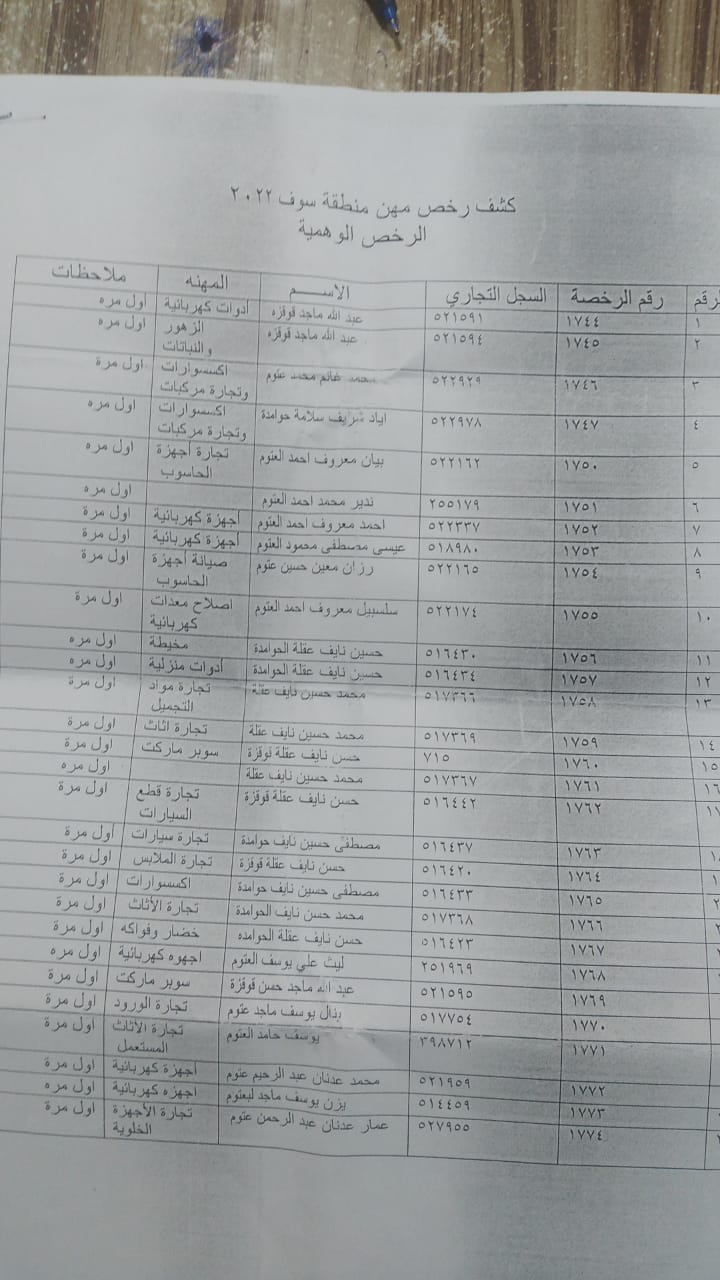 كشف رخص مهن منطقة سوف ٢٠٢٢
الرخص الوهمية
الرقم رقم الرخصة السجل التجاري الاســـم المهنه ملاحظات
١ ١٧٤٤ ٥٢١٥٩١ عبد الله ماجد قوقزه أدوات كهربائية اول مره
٢ ١٧٤٥ ٥٢١٥٩٤ عبد الله ماجد قوقزه الزهور والنباتات اول مره
٣ ١٧٤٦ ٥٢٢٩٢٩ محمد غانم محمد عتوم اكسسوارات وتجارة مركبات اول مرة
٤ ١٧٤٧ ٥٢٢٩٧٨ اياد شريف سلامة حوامدة اكسسوارات وتجارة مركبات اول مره
٥ ١٧٥٠ ٥٢٢١٦٢ بيان معروف احمد العتوم تجارة أجهزة الحاسوب اول مره
٦ ١٧٥١ ٢٥٥١٧٩ ندير محمد احمد العتوم اول مره
٧ ١٧٥٢ ٥٢٢٣٣٧ احمد معروف احمد العتوم أجهزة كهربائية اول مرة
٨ ١٧٥٣ ٥١٨٩٨٠ عيسى مصطفى محمود العتوم أجهزة كهربائية اول مره
٩ ١٧٥٤ ٥٢٢١٦٥ رزان معين حسين عتوم صيانة أجهزة الحاسوب اول مرة
١٠ ١٧٥٥ ٥٢٢١٧٤ سلسبيل معروف احمد العتوم اصلاح معدات كهربائية اول مرة
١١ ١٧٥٦ ٥١٦٤٣٠ حسين نايف عقلة الحوامدة مخيطة اول مره
١٢ ١٧٥٧ ٥١٦٤٣٤ حسين نايف عقلة الحوامدة أدوات منزلية اول مره
١٣ ١٧٥٨ ٥١٧٣٦٦ محمد حسين نايف عقلة تجارة مواد التجميل اول مرة
١٤ ١٧٥٩ ٥١٧٣٦٩ محمد حسين نايف عقلة تجارة اثاث اول مرة
١٥ ١٧٦٠ ٧١٥ حسن نايف عقلة قوقزة سوبر ماركت اول مرة
١٧٦١ ٥١٧٣٦٧ محمد حسين نايف عقلة اول مره
١٧٦٢ ٥١٦٤٤٢ حسن نايف عقلة قوقزة تجارة قطع السيارات اول مرة
١٧٦٣ ٥١٦٤٣٧ مصطفى حسين نايف حوامدة تجارة سيارات أول مرة
١٧٦٤ ٥١٦٤٢٠ حسن نايف عقلة قوقزة تجارة الملابس اول مرة
١٧٦٥ ٥١٦٤٣٣ مصطفى حسين نايف حوامدة اكسسوارات اول مرة
١٧٦٦ ٥١٧٣٦٨ محمد حسن نايف الحوامدة تجارة الأثاث اول مرة
١٧٦٧ ٥١٦٤٢٣ حسن نايف عقلة الحوامده خضار وفواكه اول مرة
١٧٦٨ ٢٥١٩٦٩ ليث علي يوسف العتوم اجهوه كهربائية اول مره
١٧٦٩ ٥٢١٥٩٥ عبد الله ماجد حسن قوقزة سوبر ماركت اول مرة
١٧٧٠ ٥١٧٧٥٤ بتال يوسف ماجد عتوم تجارة الورود اول مرة
١٧٧١ ٣٩٨٧١٢ يوسف حامد العتوم تجارة الأثاث المستعمل اول مرة
١٧٧٢ ٥٢١٩٥٩ محمد عدنان عبد الرحيم عتوم أجهزة كهربائية اول مرة
١٧٧٣ ٥١٤٤٥٩ يزن يوسف ماجد لبعتوم اجهزه كهربائية اول مره
١٧٧٤ ٥٢٧٩٥٥ عمار عدنان عبد الرحمن عتوم تجارة الأجهزة الخلوية اول مرة